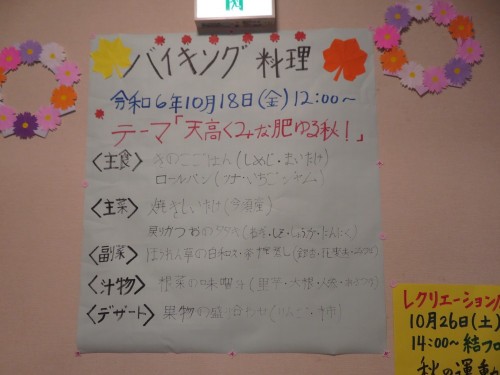 バイキング料理
令和6年10月18日(金)12:00〜
テーマ「天高くみな肥ゆる秋!」
<主食> きのこごはん(しめじ・まいたけ)
ロールパン(ツナ・いちごジャム)
<主菜> 焼きしいたけ
戻りかつおのタタキ(ねぎ・しそ・しょうが・にんにく)
<副菜> ほうれん草の白和え・茶椀蒸し
<汁物> 根菜の味噌汁(里芋・大根・人参・
<デザート> 果物の盛り合わせ(りんご・柿)
レクリエーション
10月26日(土)
14:00〜 結フロ
秋の運動